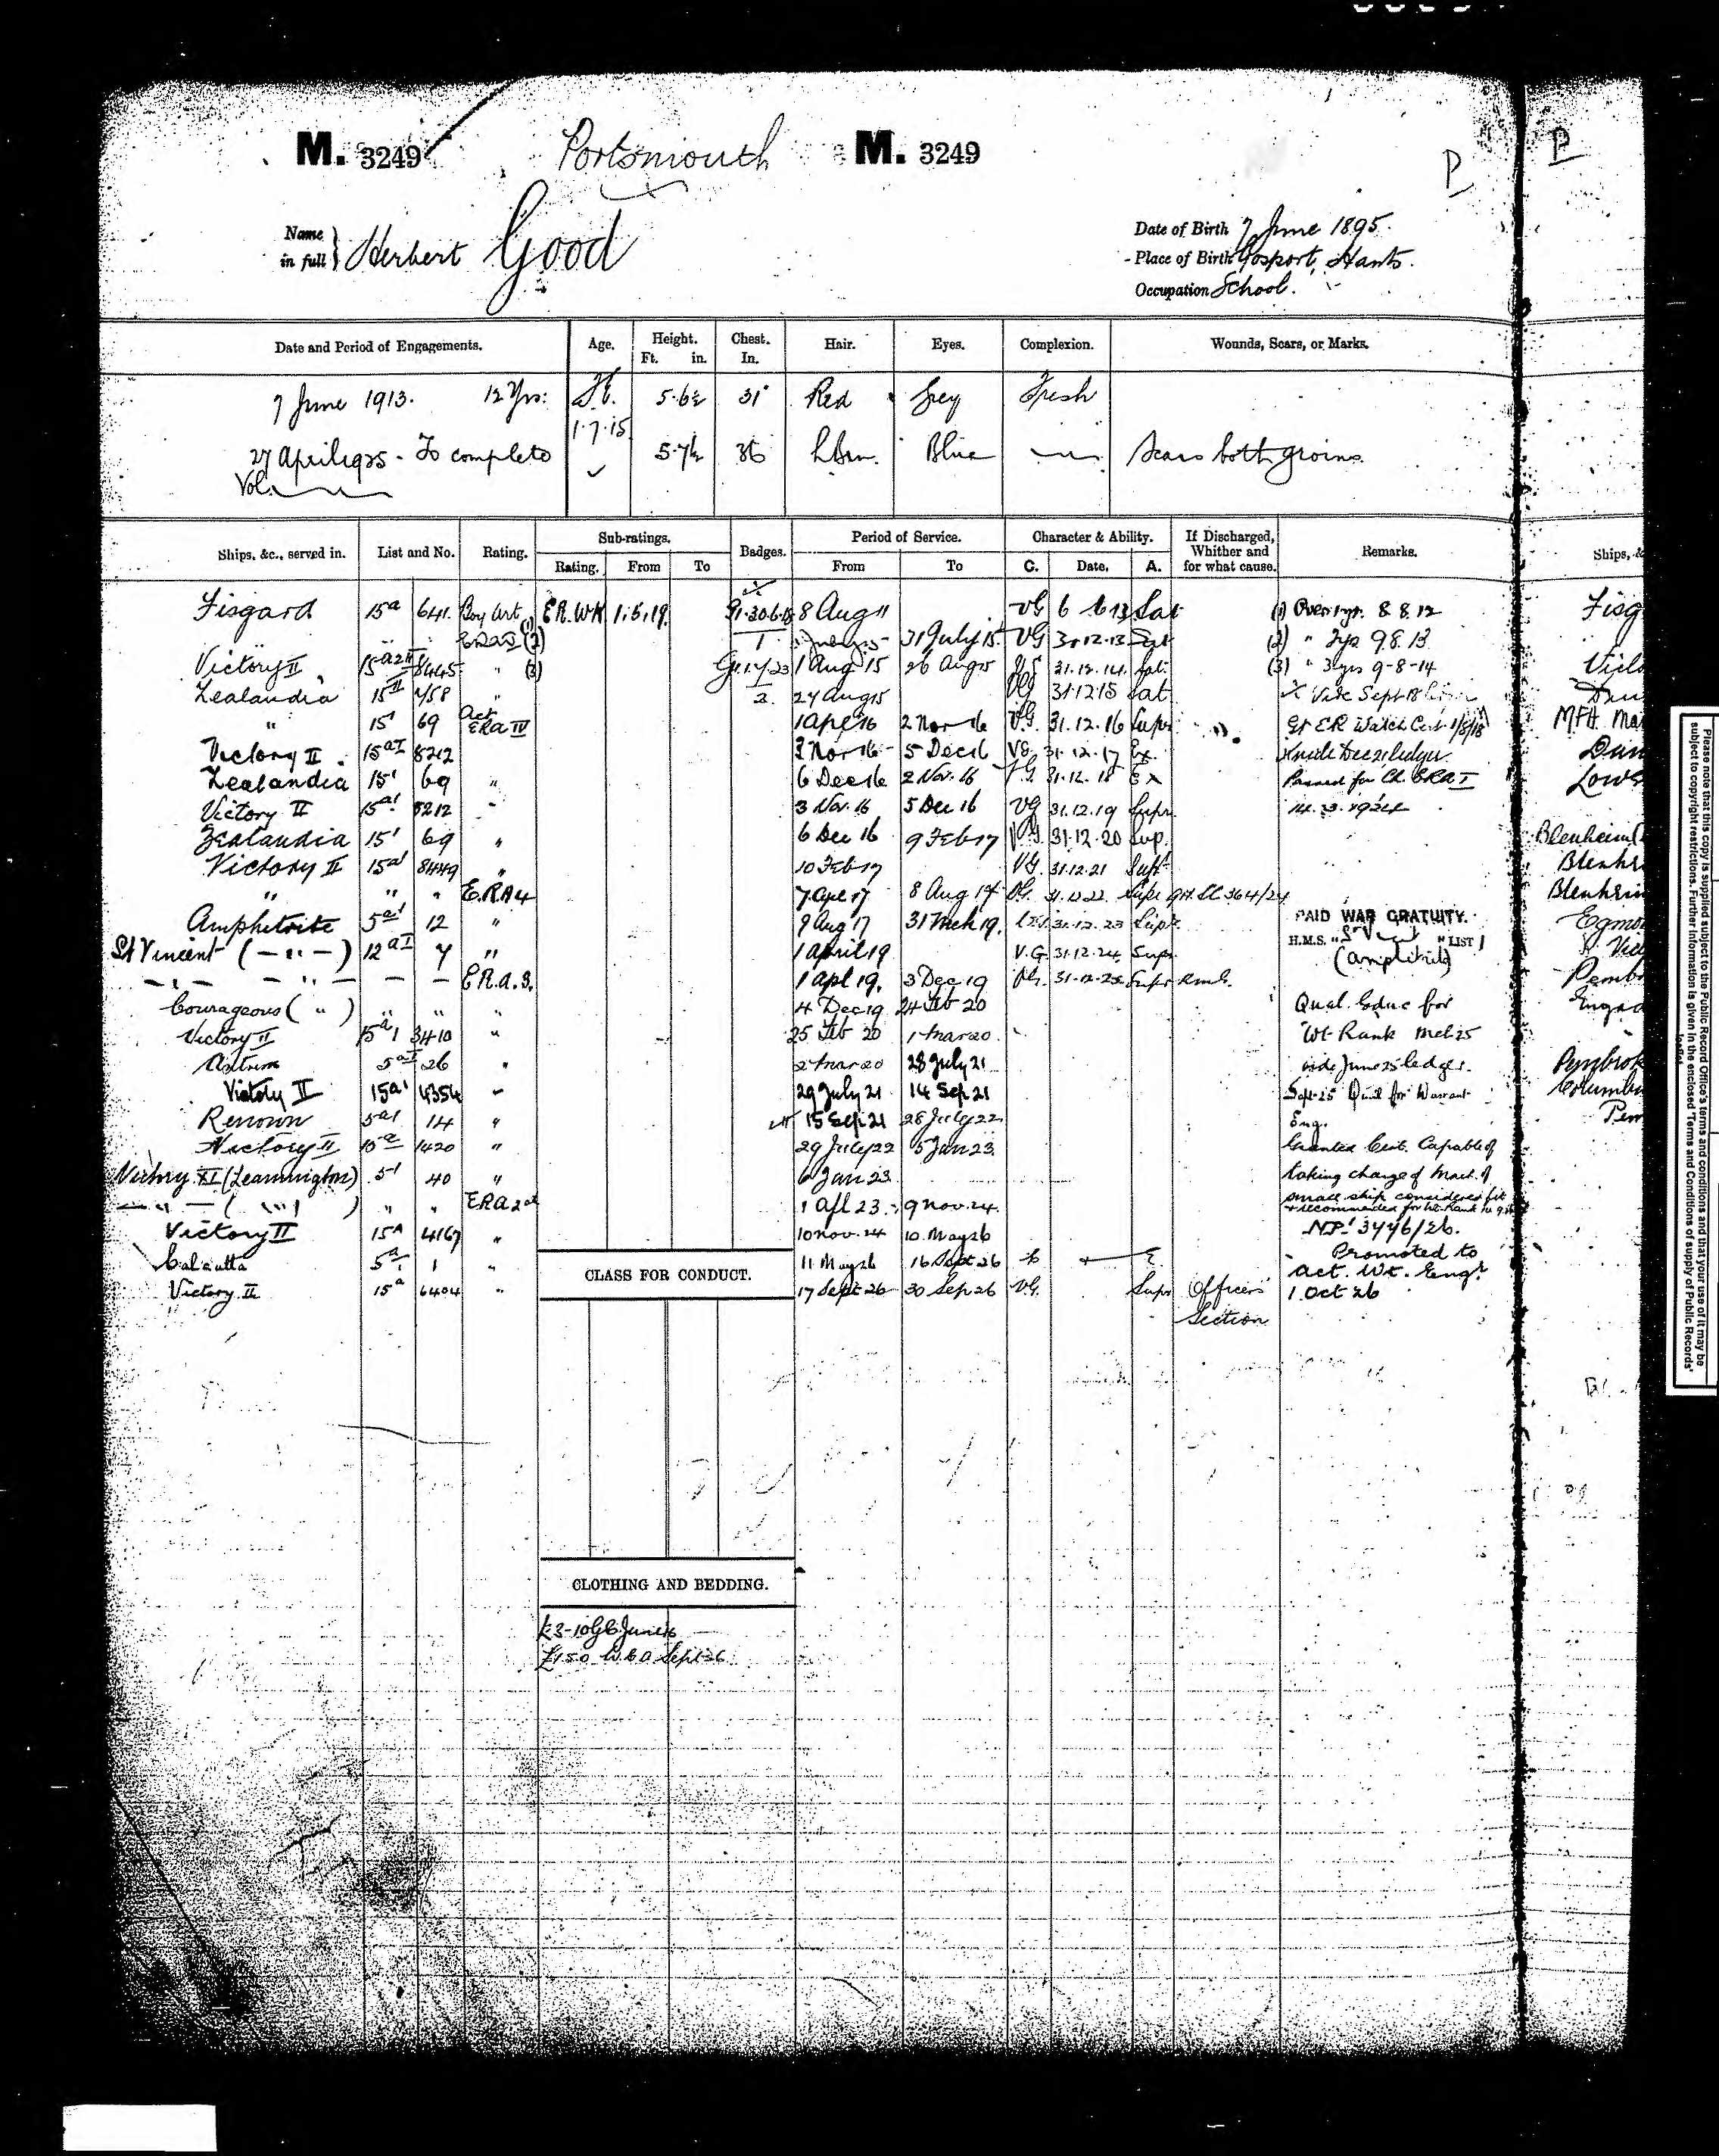 M. 3249 Portsmouth M. 3249
P P
Name in full } Herbert Good
Date of Birth 7 June 1895.
Place of Birth Gosport, Hants.
Occupation School.
Date and Period of Engagements. Age. Height. Ft. in. Chest. In. Hair. Eyes. Complexion. Wounds, Scars, or Marks.
7 June 1913. 12 Yrs: 5.6½ 31 Red Grey Fresh
1.7.15
27 April 1925 - To complete 5.7½ 36 Blue Scars both groins.
Vol.
Ships, &c., served in. List and No. Rating. Sub-ratings. Rating. From To Badges. Period of Service. From To Character & Ability. C. Date. A. If Discharged, Whither and for what cause. Remarks. Ships, &
Fisgard 15a 641. Boy Art (1) ER.WK 1.5.19. 8 Aug 11 VG 6 6 13 Sat (1) Over 1 yr. 8.8.12 Fisg
(2) 1 31 July 15 VG 31.12.13 Sat (2) " 2 yrs 9.8.13
Victory II 8445 " (3) 1 Aug 15 26 Aug 15 31.12.14 Sat (3) " 3 yrs 9-8-14
Zealandia 15 II " 2. 27 Aug 15 VG 31.12.15 Sat
" 15' 69 Act ERA IV 1 Apl 16 2 Nov 16 VG. 31.12.16 Supr Gt ER Watch Cert 1/8/18
Victory II 15aI 8212 3 Nov 16 5 Dec 16 VG 31.12.17 Ex. Dun
Zealandia 15' 69 " 6 Dec 16 2 Nov. 16 VG. 31.12.18 Ex Passed for Ch. ERA I Lows
Victory II 15a' 8212 " 3 Nov. 16 5 Dec 16 VG 31.12.19 Supr. 14.3.1924
Zealandia 15' 69 " 6 Dec 16 9 Feb 17 VG 31.12.20 Sup. Blenheim
Victory II 15a' 8449 " 10 Feb 17 VG. 31.12.21 Supr Blenhe
" " " E.RA 4 7 Apl 17 8 Aug 17 VG. 31.12.22 Supr Blenheim
Amphitrite 5a' 12 " 9 Aug 17 31 Mch 19. 31.12.23 Supr PAID WAR GRATUITY. Egmo
St Vincent ( — " — ) 12aI 7 " 1 April 19 V.G. 31.12.24 Supr H.M.S. " St Vincent " LIST 1
(Amphitrite)
— " — — " — — — E.R.A.3. 1 Apl 19. 3 Dec 19 VG. 31.12.25 Supr Pemb
Courageous ( " ) " " " 4 Dec 19 24 Feb 20 Qual. Educ for
Victory II 15a1 3410 " 25 Feb 20 1 Mar 20. Wt Rank Mch 25
5aI 26 " 2 Mar 20 28 July 21 vide June 25 ledger. Pembrok
Victory II 15a' 4354 " 29 July 21 14 Sep 21 Sept 25 Qual for Warrant Columbin
Renown 5a1 14 " 15 Sep 21 28 July 22 Eng. Pem
Victory II 15a 1420 " 29 July 22 5 Jan 23. Granted Cert. Capable of
Victory XI (Leamington) 5' 40 " 6 Jan 23 taking charge of Mach. of
— " — ( " ) " " ERA 2nd 1 Apl 23 9 Nov. 24. small ship considered fit
& recommended for Wt. Rank
Victory II 15A 4167 " 10 Nov. 24 10. May 26 NP' 3776/26.
Calcutta 5a1 1 " 11 May 26 16 Sept 26 Promoted to
Act. Wt. Engr
Victory II 15a 6404 " 17 Sept 26 30 Sep 26 V.G. Supr Officers' Section 1 Oct 26
CLASS FOR CONDUCT.
CLOTHING AND BEDDING.
Please note that this copy is supplied subject to the Public Record Office's terms and conditions and that your use of it may be
subject to copyright restrictions. Further information is given in the enclosed 'Terms and Conditions of supply of Public Records'
leaflet